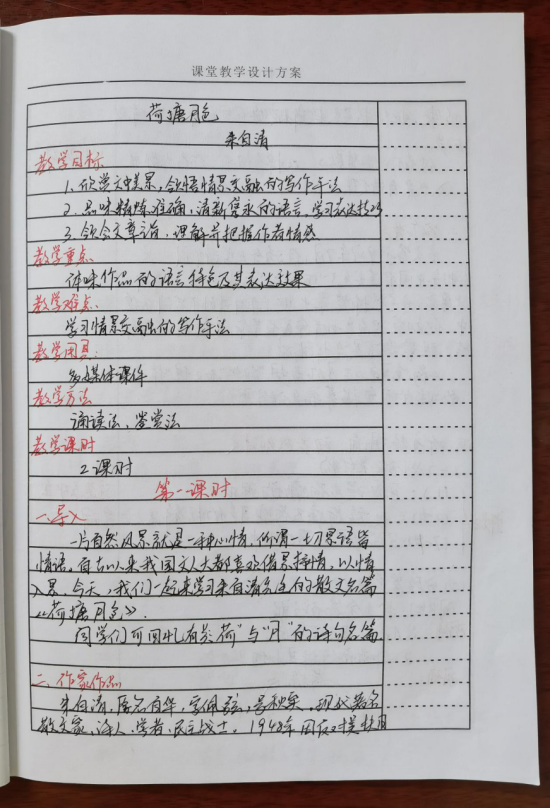 课堂教学设计方案
荷塘月色
朱自清
教学目标
1. 欣赏文中美景,领悟情景交融的写作手法
2. 品味精炼准确,清新隽永的语言,学习表达技巧
3. 领会文章主旨,理解并把握作者情感
教学重点
体味作品的语言特色及其表达效果
教学难点:
学习情景交融的写作手法
教学用具:
多媒体课件
教学方法
诵读法、鉴赏法
教学课时
2课时
第一课时
一、导入
一片自然风景就是一种心情,所谓一切景语皆
情语,自古以来我国文人大都喜欢借景抒情,以情
入景,今天,我们一起来学习朱自清先生的散文名篇
《荷塘月色》.
同学们可回忆有关"荷"与"月"的诗句名篇.
二、作家作品
朱自清,原名自华,字佩弦,号秋实,现代著名
散文家、诗人、学者、民主战士。1948年因反对美扶日